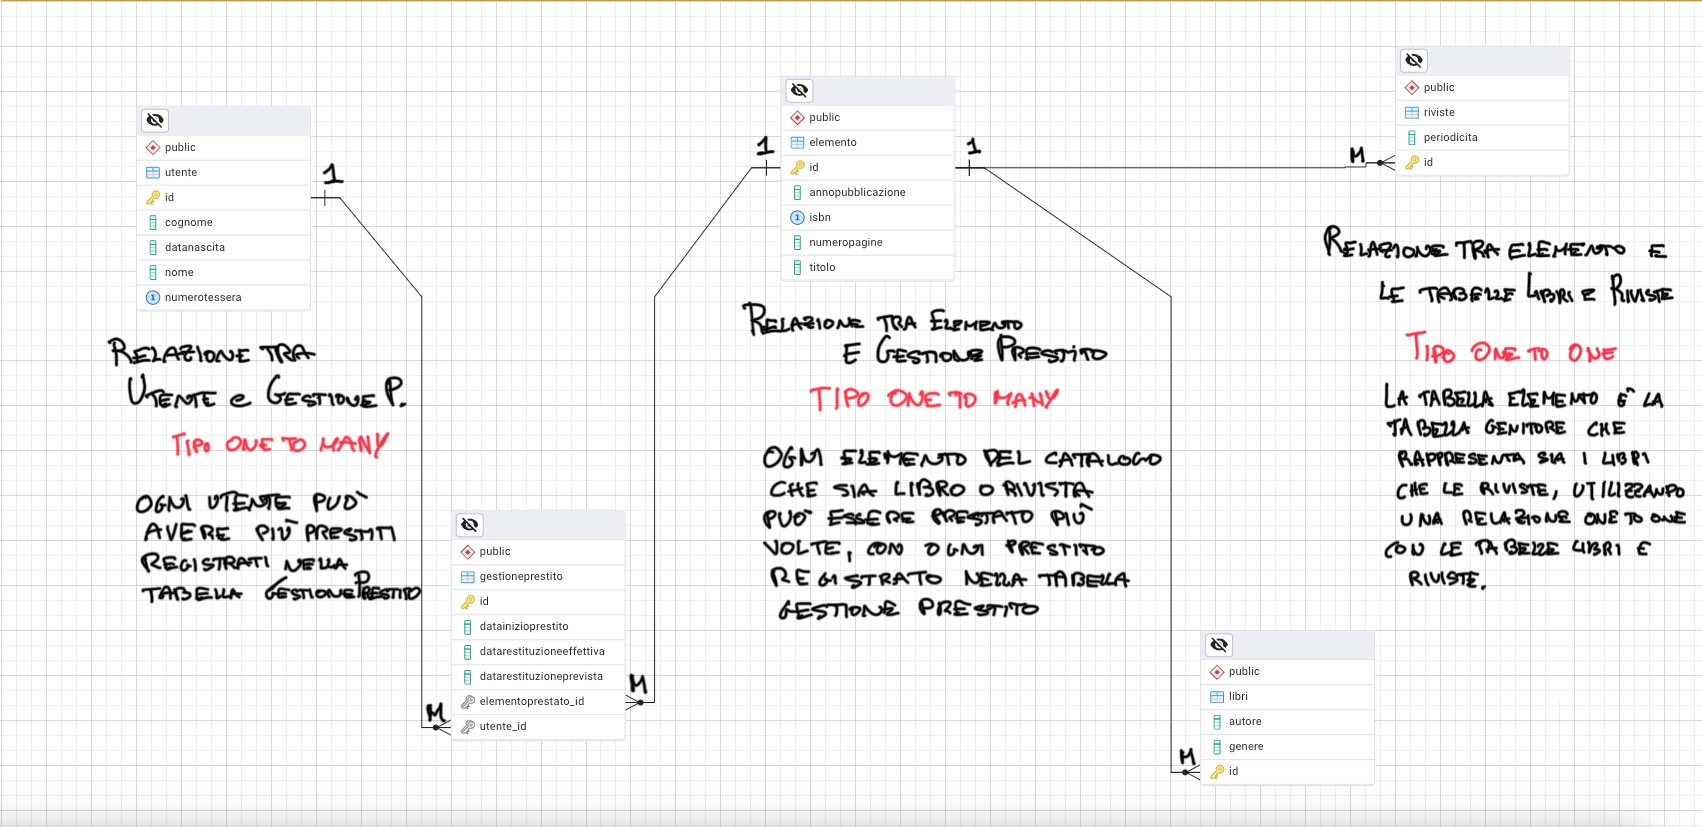 public
utente
id
cognome
datanascita
nome
numerotessera
1
RELAZIONE TRA
UTENTE e GESTIONE P.
TIPO ONE TO MANY
OGNI UTENTE PUÒ
AVERE PIÙ PRESTITI
REGISTRATI NELLA
TABELLA GESTIONE PRESTITO
public
gestioneprestito
id
datainizioprestito
datarestituzioneeffettiva
datarestituzioneprevista
elementoprestato_id
utente_id
M
M
1
public
elemento
id
annopubblicazione
isbn
numeropagine
titolo
1
RELAZIONE TRA ELEMENTO
E GESTIONE PRESTITO
TIPO ONE TO MANY
OGNI ELEMENTO DEL CATALOGO
CHE SIA LIBRO O RIVISTA
PUÒ ESSERE PRESTATO PIÙ
VOLTE, CON OGNI PRESTITO
REGISTRATO NELLA TABELLA
GESTIONE PRESTITO
M
public
riviste
periodicita
id
RELAZIONE TRA ELEMENTO E
LE TABELLE LIBRI E RIVISTE
TIPO ONE TO ONE
LA TABELLA ELEMENTO È LA
TABELLA GENITORE CHE
RAPPRESENTA SIA I LIBRI
CHE LE RIVISTE, UTILIZZANDO
UNA RELAZIONE ONE TO ONE
CON LE TABELLE LIBRI E
RIVISTE.
M
public
libri
autore
genere
id